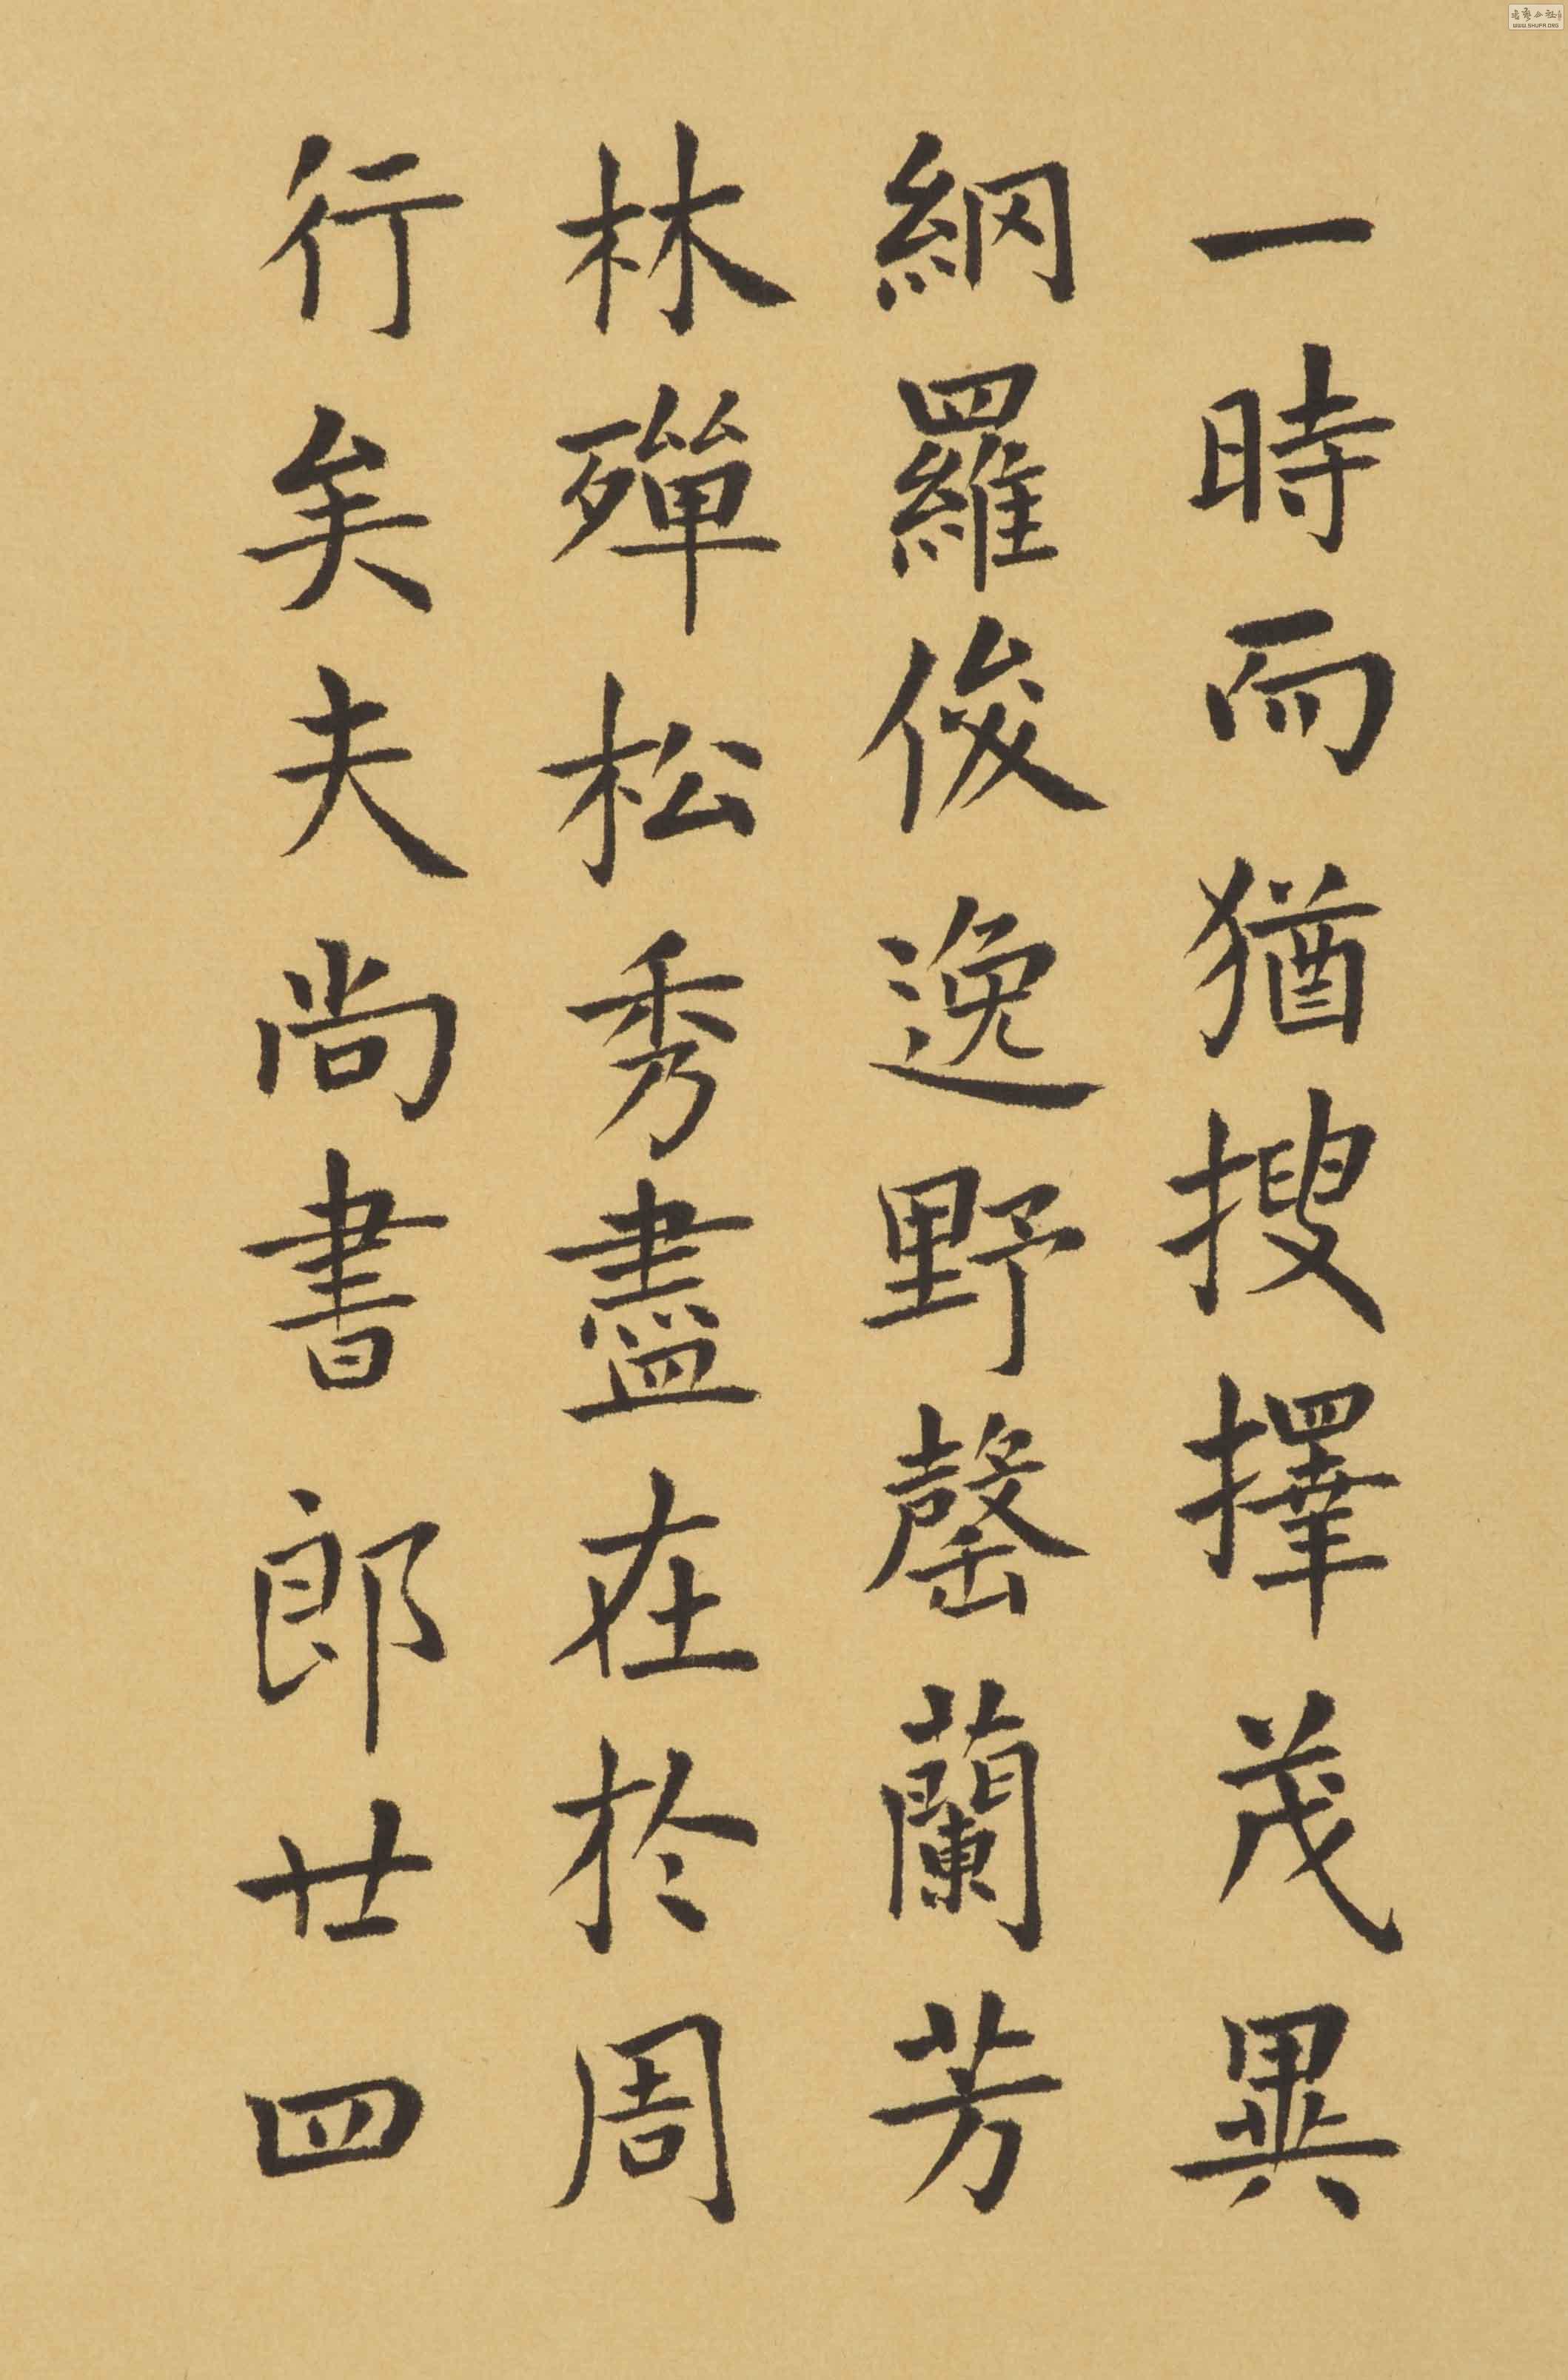 一時而猶搜擇茂異
網羅俊逸野罄蘭芳
林殫松秀盡在於周
行矣夫尚書郎廿四
WWW.SHUFA.ORG